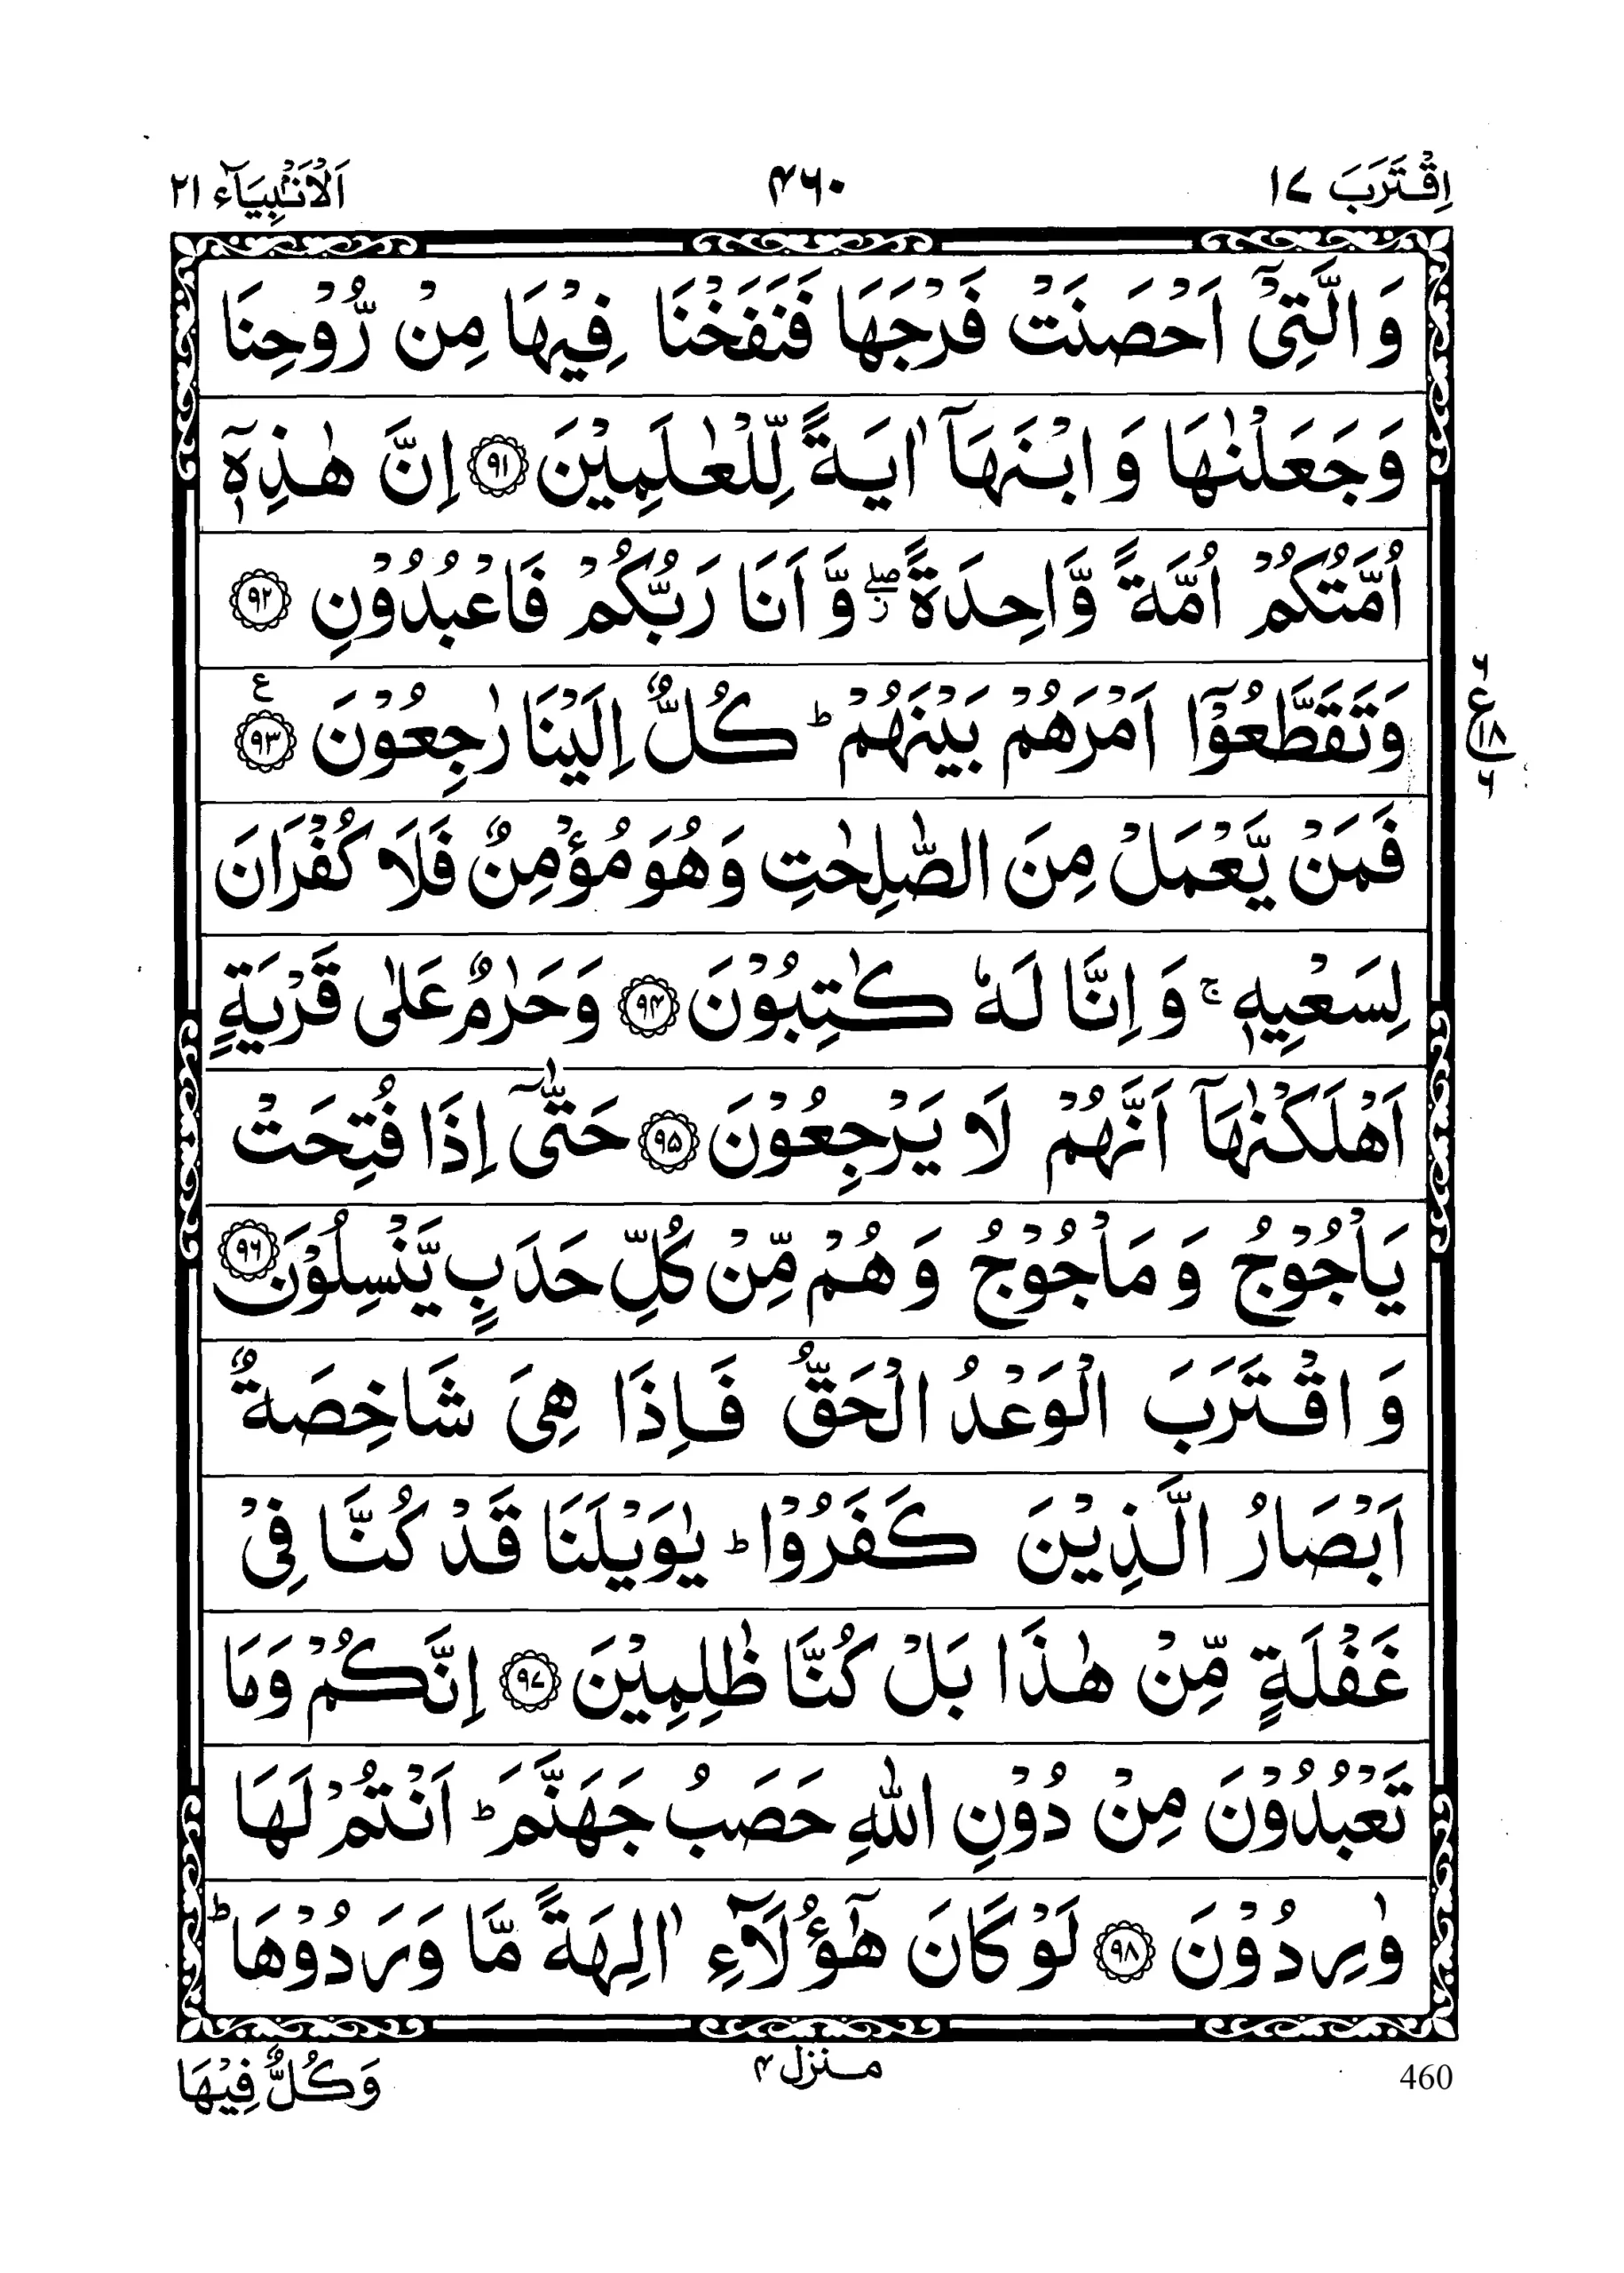 اِقْتَرَبَ ١٧ ۴٦٠ اَلْاَنْۢبِيَآء ٢١
وَالَّتِيْٓ اَحْصَنَتْ فَرْجَهَا فَنَفَخْنَا فِيْهَا مِنْ رُّوْحِنَا
وَجَعَلْنٰهَا وَابْنَهَآ اٰيَةً لِّلْعٰلَمِيْنَ ﴿٩١﴾ اِنَّ هٰذِهٖٓ
اُمَّتُكُمْ اُمَّةً وَّاحِدَةً ۖ ز وَّاَنَا رَبُّكُمْ فَاعْبُدُوْنِ ﴿٩٢﴾
وَتَقَطَّعُوْٓا اَمْرَهُمْ بَيْنَهُمْ ؕ كُلٌّ اِلَيْنَا رٰجِعُوْنَ ﴿٩٣﴾ ع
٦ ع ١٨ ٦
فَمَنْ يَّعْمَلْ مِنَ الصّٰلِحٰتِ وَهُوَ مُؤْمِنٌ فَلَا كُفْرَانَ
لِسَعْيِهٖ ۚ وَاِنَّا لَهٗ كٰتِبُوْنَ ﴿٩۴﴾ وَحَرٰمٌ عَلٰى قَرْيَةٍ
اَهْلَكْنٰهَآ اَنَّهُمْ لَا يَرْجِعُوْنَ ﴿٩۵﴾ حَتّٰىٓ اِذَا فُتِحَتْ
يَاْجُوْجُ وَمَاْجُوْجُ وَهُمْ مِّنْ كُلِّ حَدَبٍ يَّنْسِلُوْنَ ﴿٩٦﴾
وَاقْتَرَبَ الْوَعْدُ الْحَقُّ فَاِذَا هِيَ شَاخِصَةٌ
اَبْصَارُ الَّذِيْنَ كَفَرُوْا ؕ يٰوَيْلَنَا قَدْ كُنَّا فِيْ
غَفْلَةٍ مِّنْ هٰذَا بَلْ كُنَّا ظٰلِمِيْنَ ﴿٩٧﴾ اِنَّكُمْ وَمَا
تَعْبُدُوْنَ مِنْ دُوْنِ اللّٰهِ حَصَبُ جَهَنَّمَ ؕ اَنْتُمْ لَهَا
وٰرِدُوْنَ ﴿٩٨﴾ لَوْ كَانَ هٰٓؤُلَآءِ اٰلِهَةً مَّا وَرَدُوْهَا ؕ
460 منزل ۴ وَكُلٌّ فِيْهَا